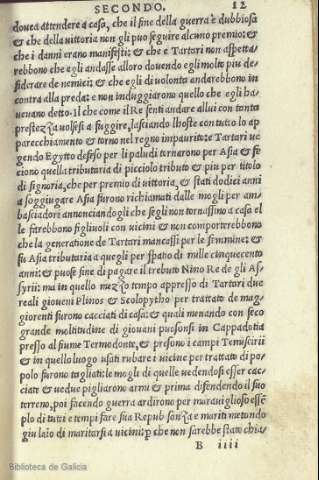 SECONDO. 12
douea attendere a casa, che il fine della guerra è dubbiosa
& che della vittoria non gli puo seguire alcuno premio: &
che i danni erano manifesti: & che e Tartari non aspetta
rebbono che egli andasse alloro douendo egli molto piu de
siderare de nemici: & che egli di volonta andarebbono in
contra alla preda: e non induggiarono quello che egli ha-
ueuano detto. Il che come il Re senti andare allui con tanta
prestezza volsesi a fuggire, lasciando lhoste con tutto lo ap
parecchiamento & torno nel regno impaurito: e Tartari ue
gendo Egytto difeso per li paludi tornarono per Asia & fe
ciono quella tributaria di picciolo tributo & piu per titolo
di signoria, che per premio di vittoria, & stati dodici anni
a soggiugare Asia furono richiamati dalle mogli per am-
basciadori annonciandogli che segli non tornassino a casa el
le farebbono figliuoli con vicini & non comporterebbono
che la generatione de Tartari mancassi per le femmine: &
fu Asia tributaria a quegli per spatio di mille cinquecento
anni: & puose fine di pagare il trebuto Nino Re de gli As-
syrii: ma in quello mezo tempo appresso di Tartari due
reali gioueni Plinos & Scolopytho per trattato de mag-
giorenti furono cacciati di casa: & quali menando con seco
grande moltitudine di giouani puosonsi in Cappadotia
presso al fiume Termodonte, & presono i campi Temiscirii
& in quello luogo usati rubare i vicine per trattato di po-
polo furono tagliati: le mogli di quelle uedendosi esser cac-
ciate & uedue pigliarono armi & prima difendendo il suo
terreno, poi facendo guerra ardirono per marauiglioso essẽ
plo di tutti e tempi fare sua Repub sanza e mariti metando
giu laio di maritarsi a vicini: ꝑ che non sarebbe stato chia-
B iiii
Biblioteca de Galicia